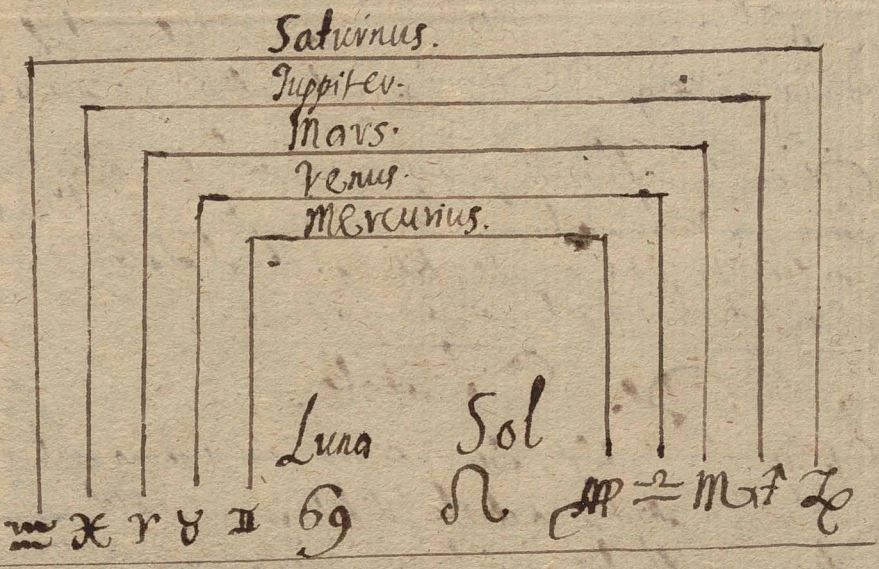 Saturnus.
Iuppiter.
Mars.
Venus.
Mercurius.
Luna Sol
♒ ♓ ♈ ♉ ♊ ♋ ♌ ♍ ♎ ♏ ♐ ♑